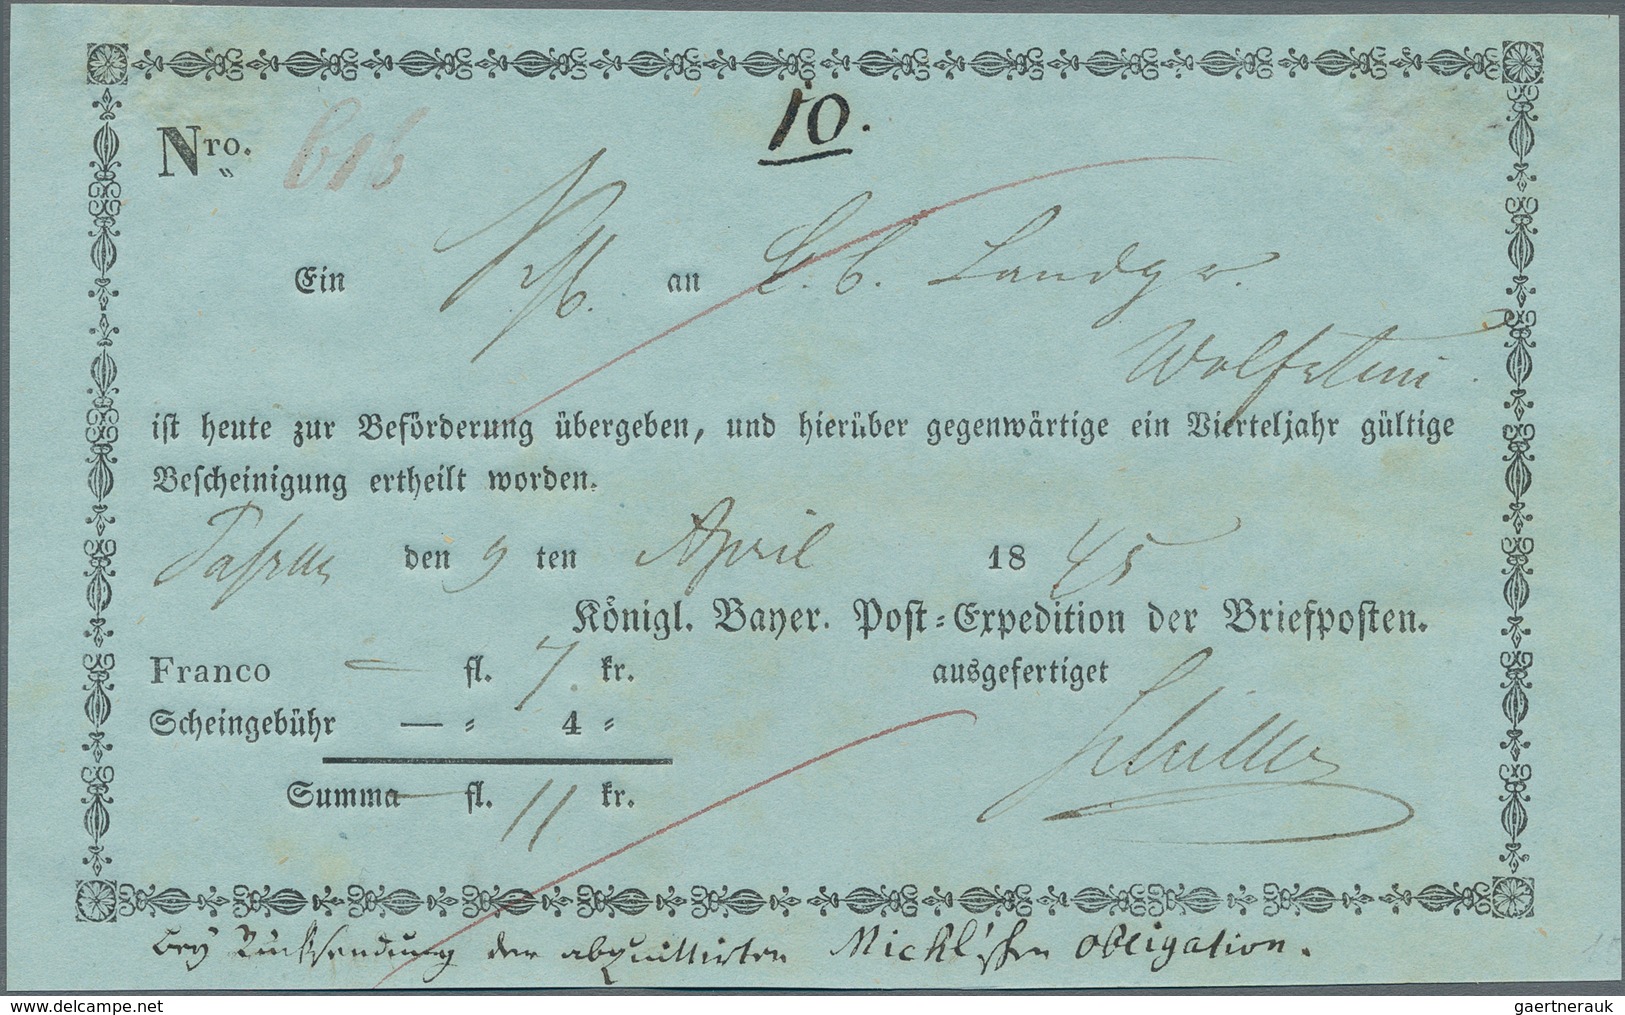 10.
Nro. 616
Ein an Landgr.
Wolfstein
ist heute zur Beförderung übergeben, und hierüber gegenwärtige ein Vierteljahr gültige
Bescheinigung ertheilt worden.
den 9 ten April 1845
Königl. Bayer. Post-Expedition der Briefposten.
Franco — fl. 7. kr. ausgefertiget
Scheingebühr — " 4 "
Summa — fl. 11 kr.
bey Rücksendung der abquittirten Mickl'schen Obligation.
© www.delcampe.net
gaertnerauk